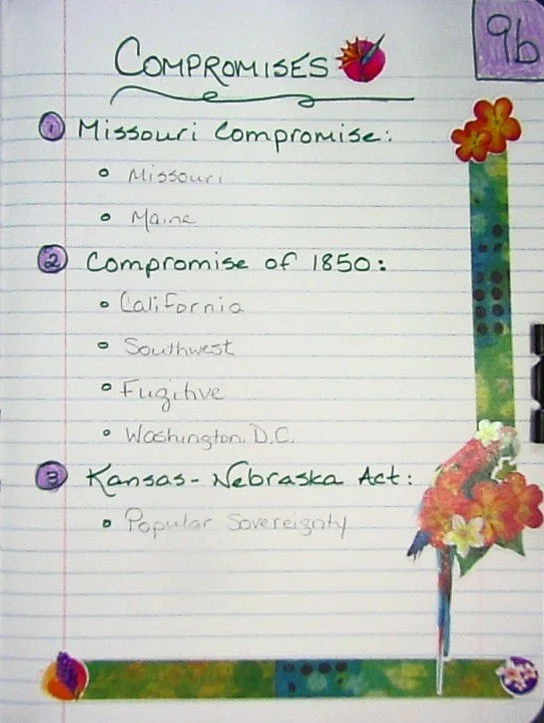 9b
COMPROMISES
1 Missouri Compromise:
Missouri
Maine
2 Compromise of 1850:
California
Southwest
Fugitive
Washington, D.C.
3 Kansas-Nebraska Act:
Popular Sovereignty